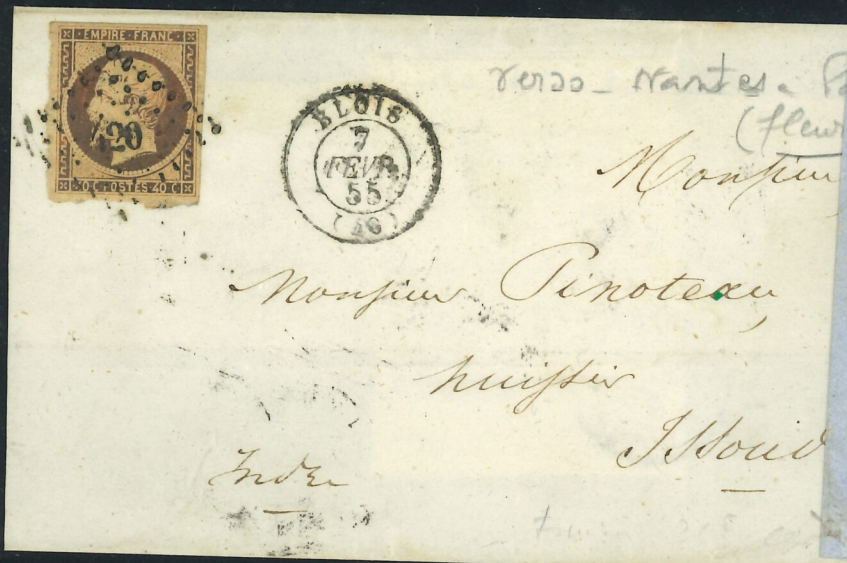 EMPIRE FRANC
420
40 C POSTES 40 C
BLOIS
7
FEVR
55
(40)
verso - Nantes -
(fleur
Monsieur
Monsieur Pinoteau,
huissier
Issoud
Indre